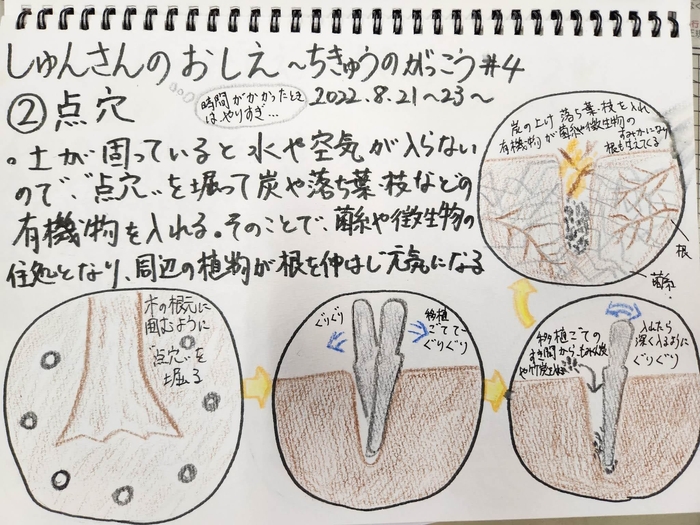 しゅんさんのおしえ～ちきゅうのがっこう#4
2022.8.21～23～
②点穴
時間がかかったとき
はやりすぎ…
。土が固っていると水や空気が入らない
ので、"点穴"を掘って炭や落ち葉・枝などの
有機物を入れる。そのことで、菌糸や微生物の
住処となり、周辺の植物が根を伸ばし元気になる
炭の上に落ち葉・枝を入れ
有機物が菌糸や微生物の
すみかになり
根も生えてくる
根
菌糸
木の根元に
囲むように
"点穴"を
掘る
ぐりぐり
移植
ごてで
ぐりぐり
移植ごての
すき間から
入れたら
深く入るように
ぐりぐり